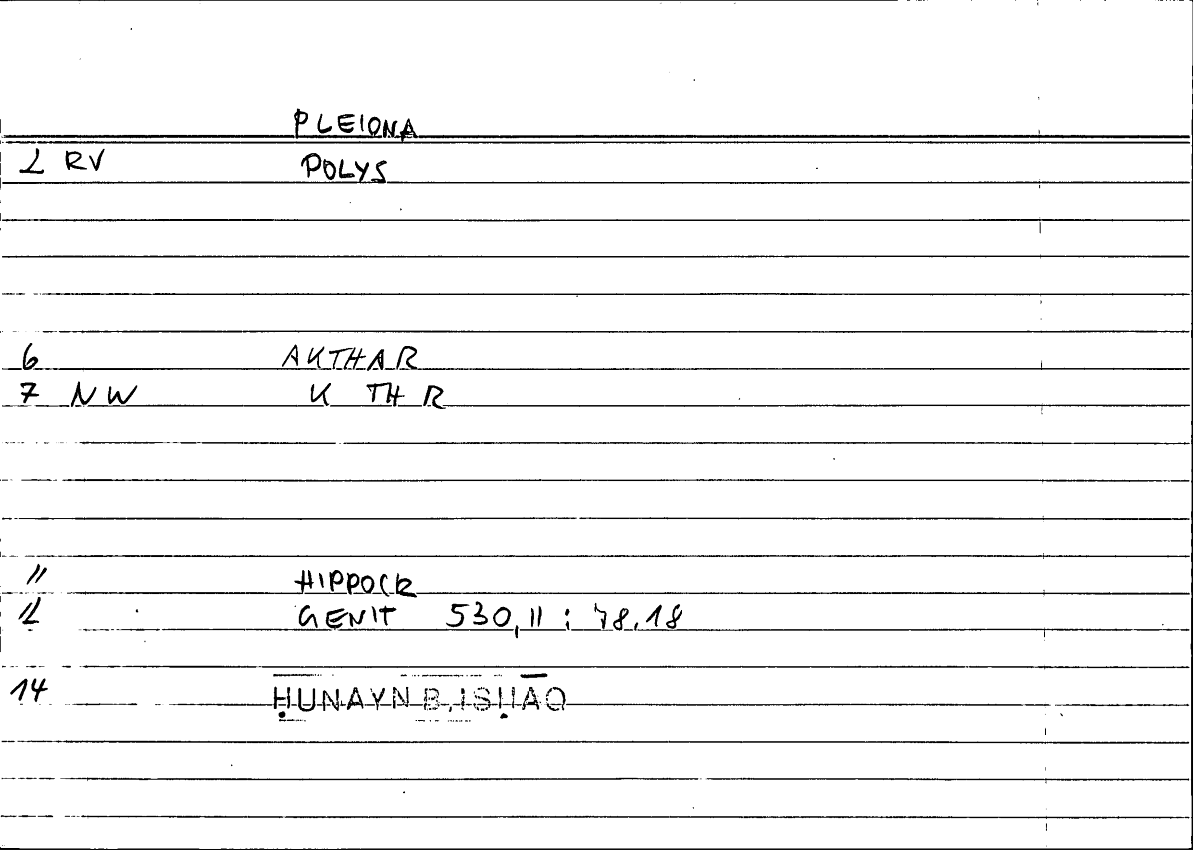 PLEIONA
2 RV POLYS
6 AKTHAR
7 NW K TH R
11 HIPPOCR
12 GENIT 530,11 : 78.18
14 ḤUNAYN B. ISḤĀQ